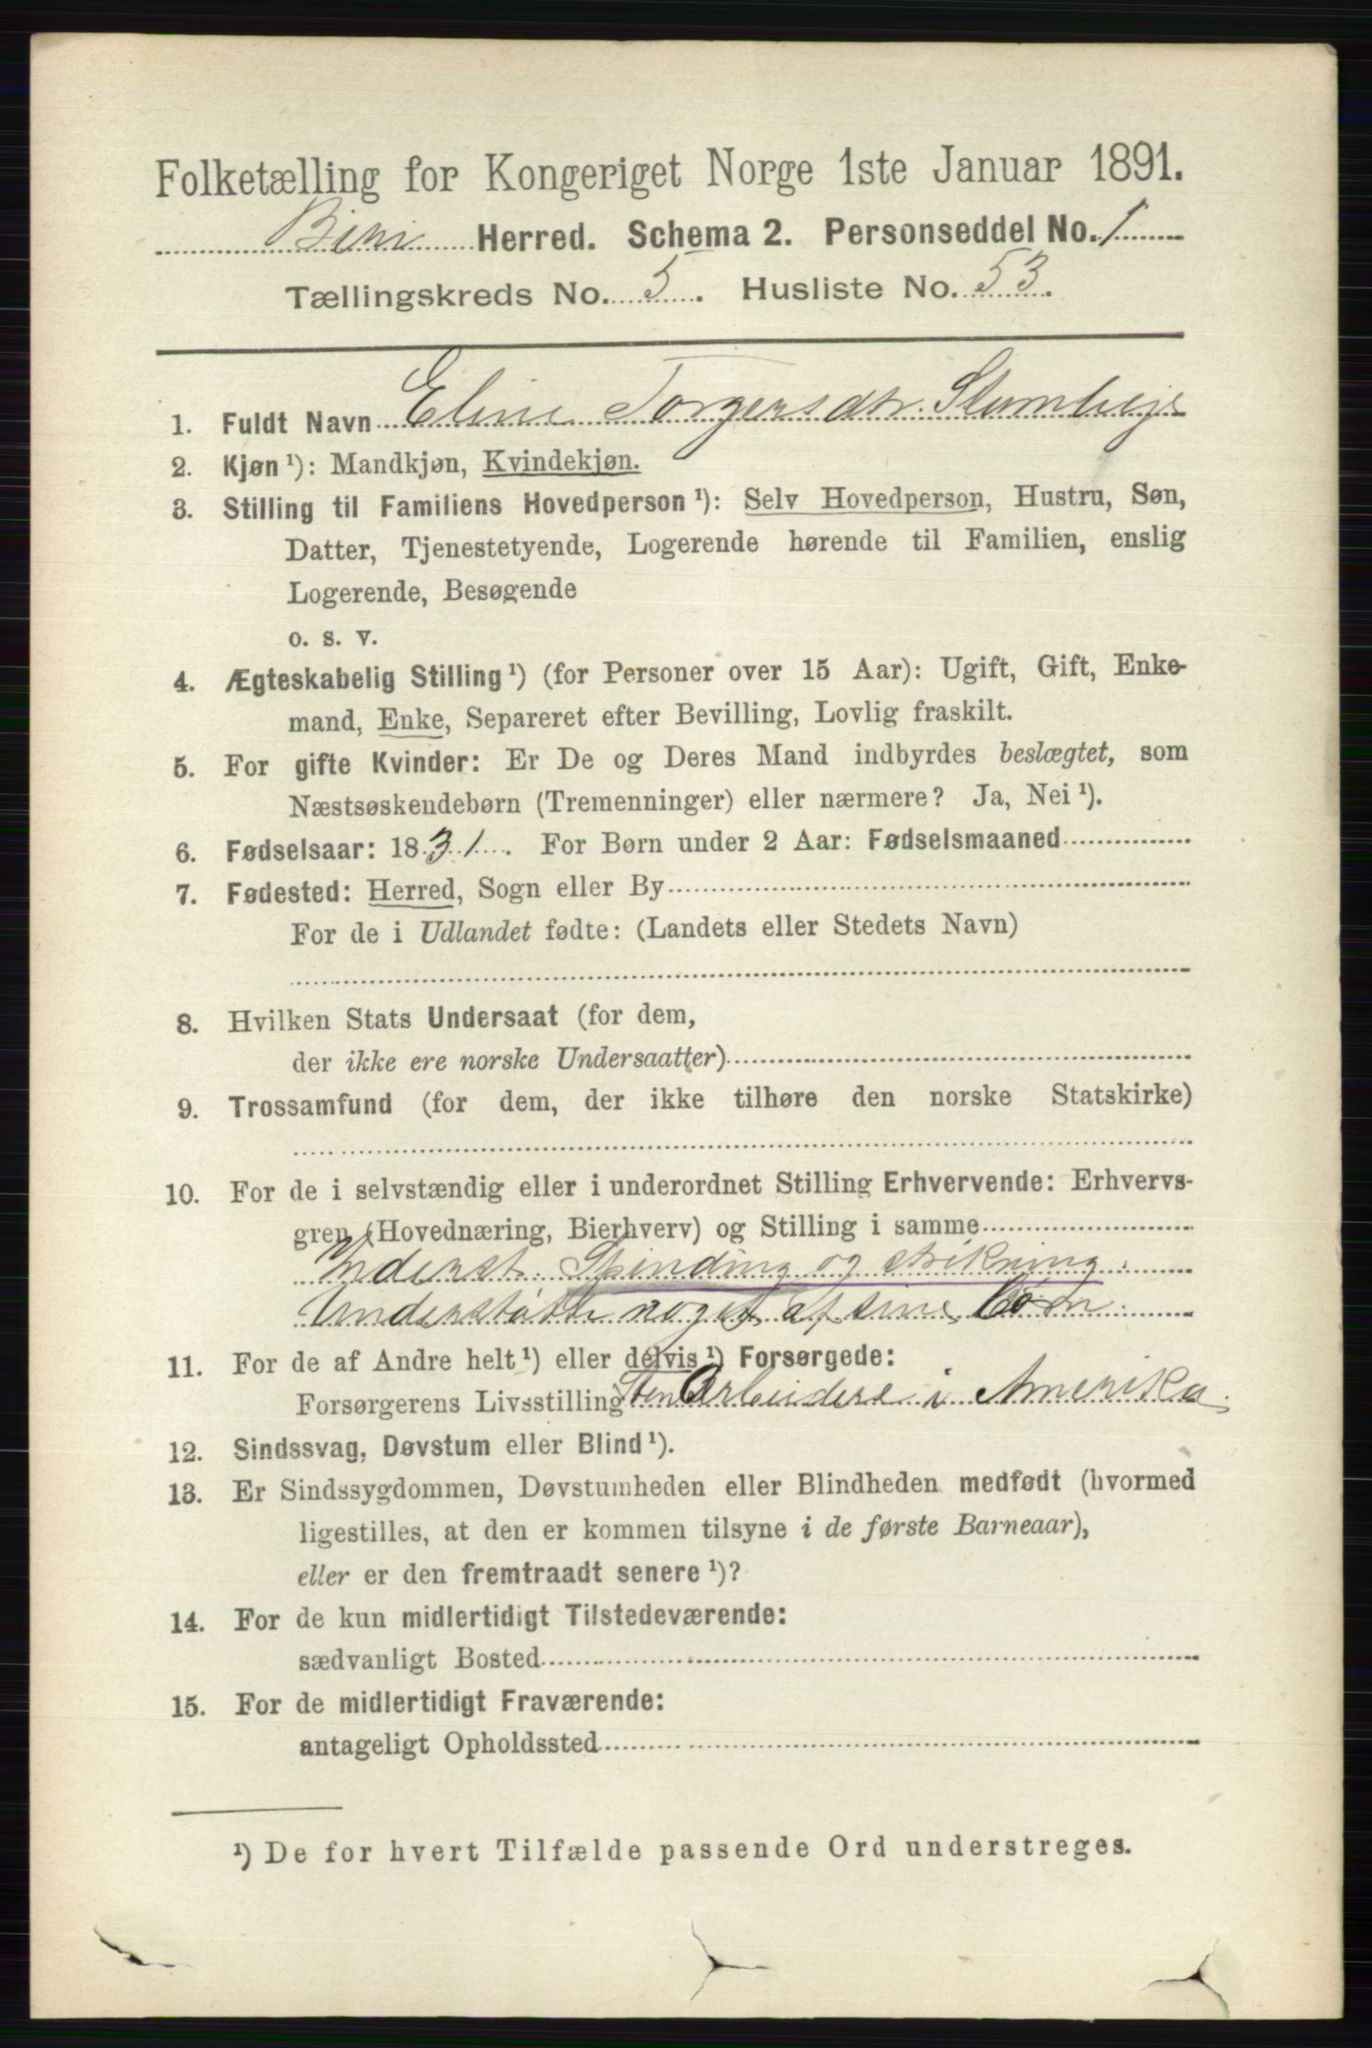 Folketælling for Kongeriget Norge 1ste Januar 1891.
Biri Herred. Schema 2. Personseddel No. 1
Tællingskreds No. 5. Husliste No. 53.
1. Fuldt Navn Eline Torgersdtr.
2. Kjøn¹): Mandkjøn, Kvindekjøn.
3. Stilling til Familiens Hovedperson¹): Selv Hovedperson, Hustru, Søn,
Datter, Tjenestetyende, Logerende hørende til Familien, enslig
Logerende, Besøgende
o. s. v.
4. Ægteskabelig Stilling¹) (for Personer over 15 Aar): Ugift, Gift, Enke-
mand, Enke, Separeret efter Bevilling, Lovlig fraskilt.
5. For gifte Kvinder: Er De og Deres Mand indbyrdes beslægtet, som
Næstsøskendebørn (Tremenninger) eller nærmere? Ja, Nei¹).
6. Fødselsaar: 1831. For Børn under 2 Aar: Fødselsmaaned
7. Fødested: Herred, Sogn eller By
For de i Udlandet fødte: (Landets eller Stedets Navn)
8. Hvilken Stats Undersaat (for dem,
der ikke ere norske Undersaatter)
9. Trossamfund (for dem, der ikke tilhøre den norske Statskirke)
10. For de i selvstændig eller i underordnet Stilling Erhvervende: Erhvervs-
gren (Hovednæring, Bierhverv) og Stilling i samme
Inderst. Spinding og strikning.
Understøttes noget af sine Børn.
11. For de af Andre helt¹) eller delvis¹) Forsørgede:
Forsørgerens Livsstilling Arbeidere i Amerika.
12. Sindssvag, Døvstum eller Blind¹).
13. Er Sindssygdommen, Døvstumheden eller Blindheden medfødt (hvormed
ligestilles, at den er kommen tilsyne i de første Barneaar),
eller er den fremtraadt senere¹)?
14. For de kun midlertidigt Tilstedeværende:
sædvanligt Bosted
15. For de midlertidigt Fraværende:
antageligt Opholdssted
¹) De for hvert Tilfælde passende Ord understreges.